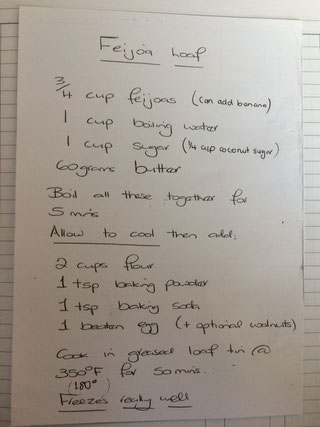 Feijoa Loaf
3/4 cup feijoas (can add banana)
1 cup boiling water
1 cup sugar (1/4 cup coconut sugar)
60grams butter
Boil all these together for
5 mins
Allow to cool then add:
2 cups flour
1 tsp baking powder
1 tsp baking soda
1 beaten egg (+ optional walnuts)
Cook in greased loaf tin @
350°F for 50mins.
(180°)
Freezes really well